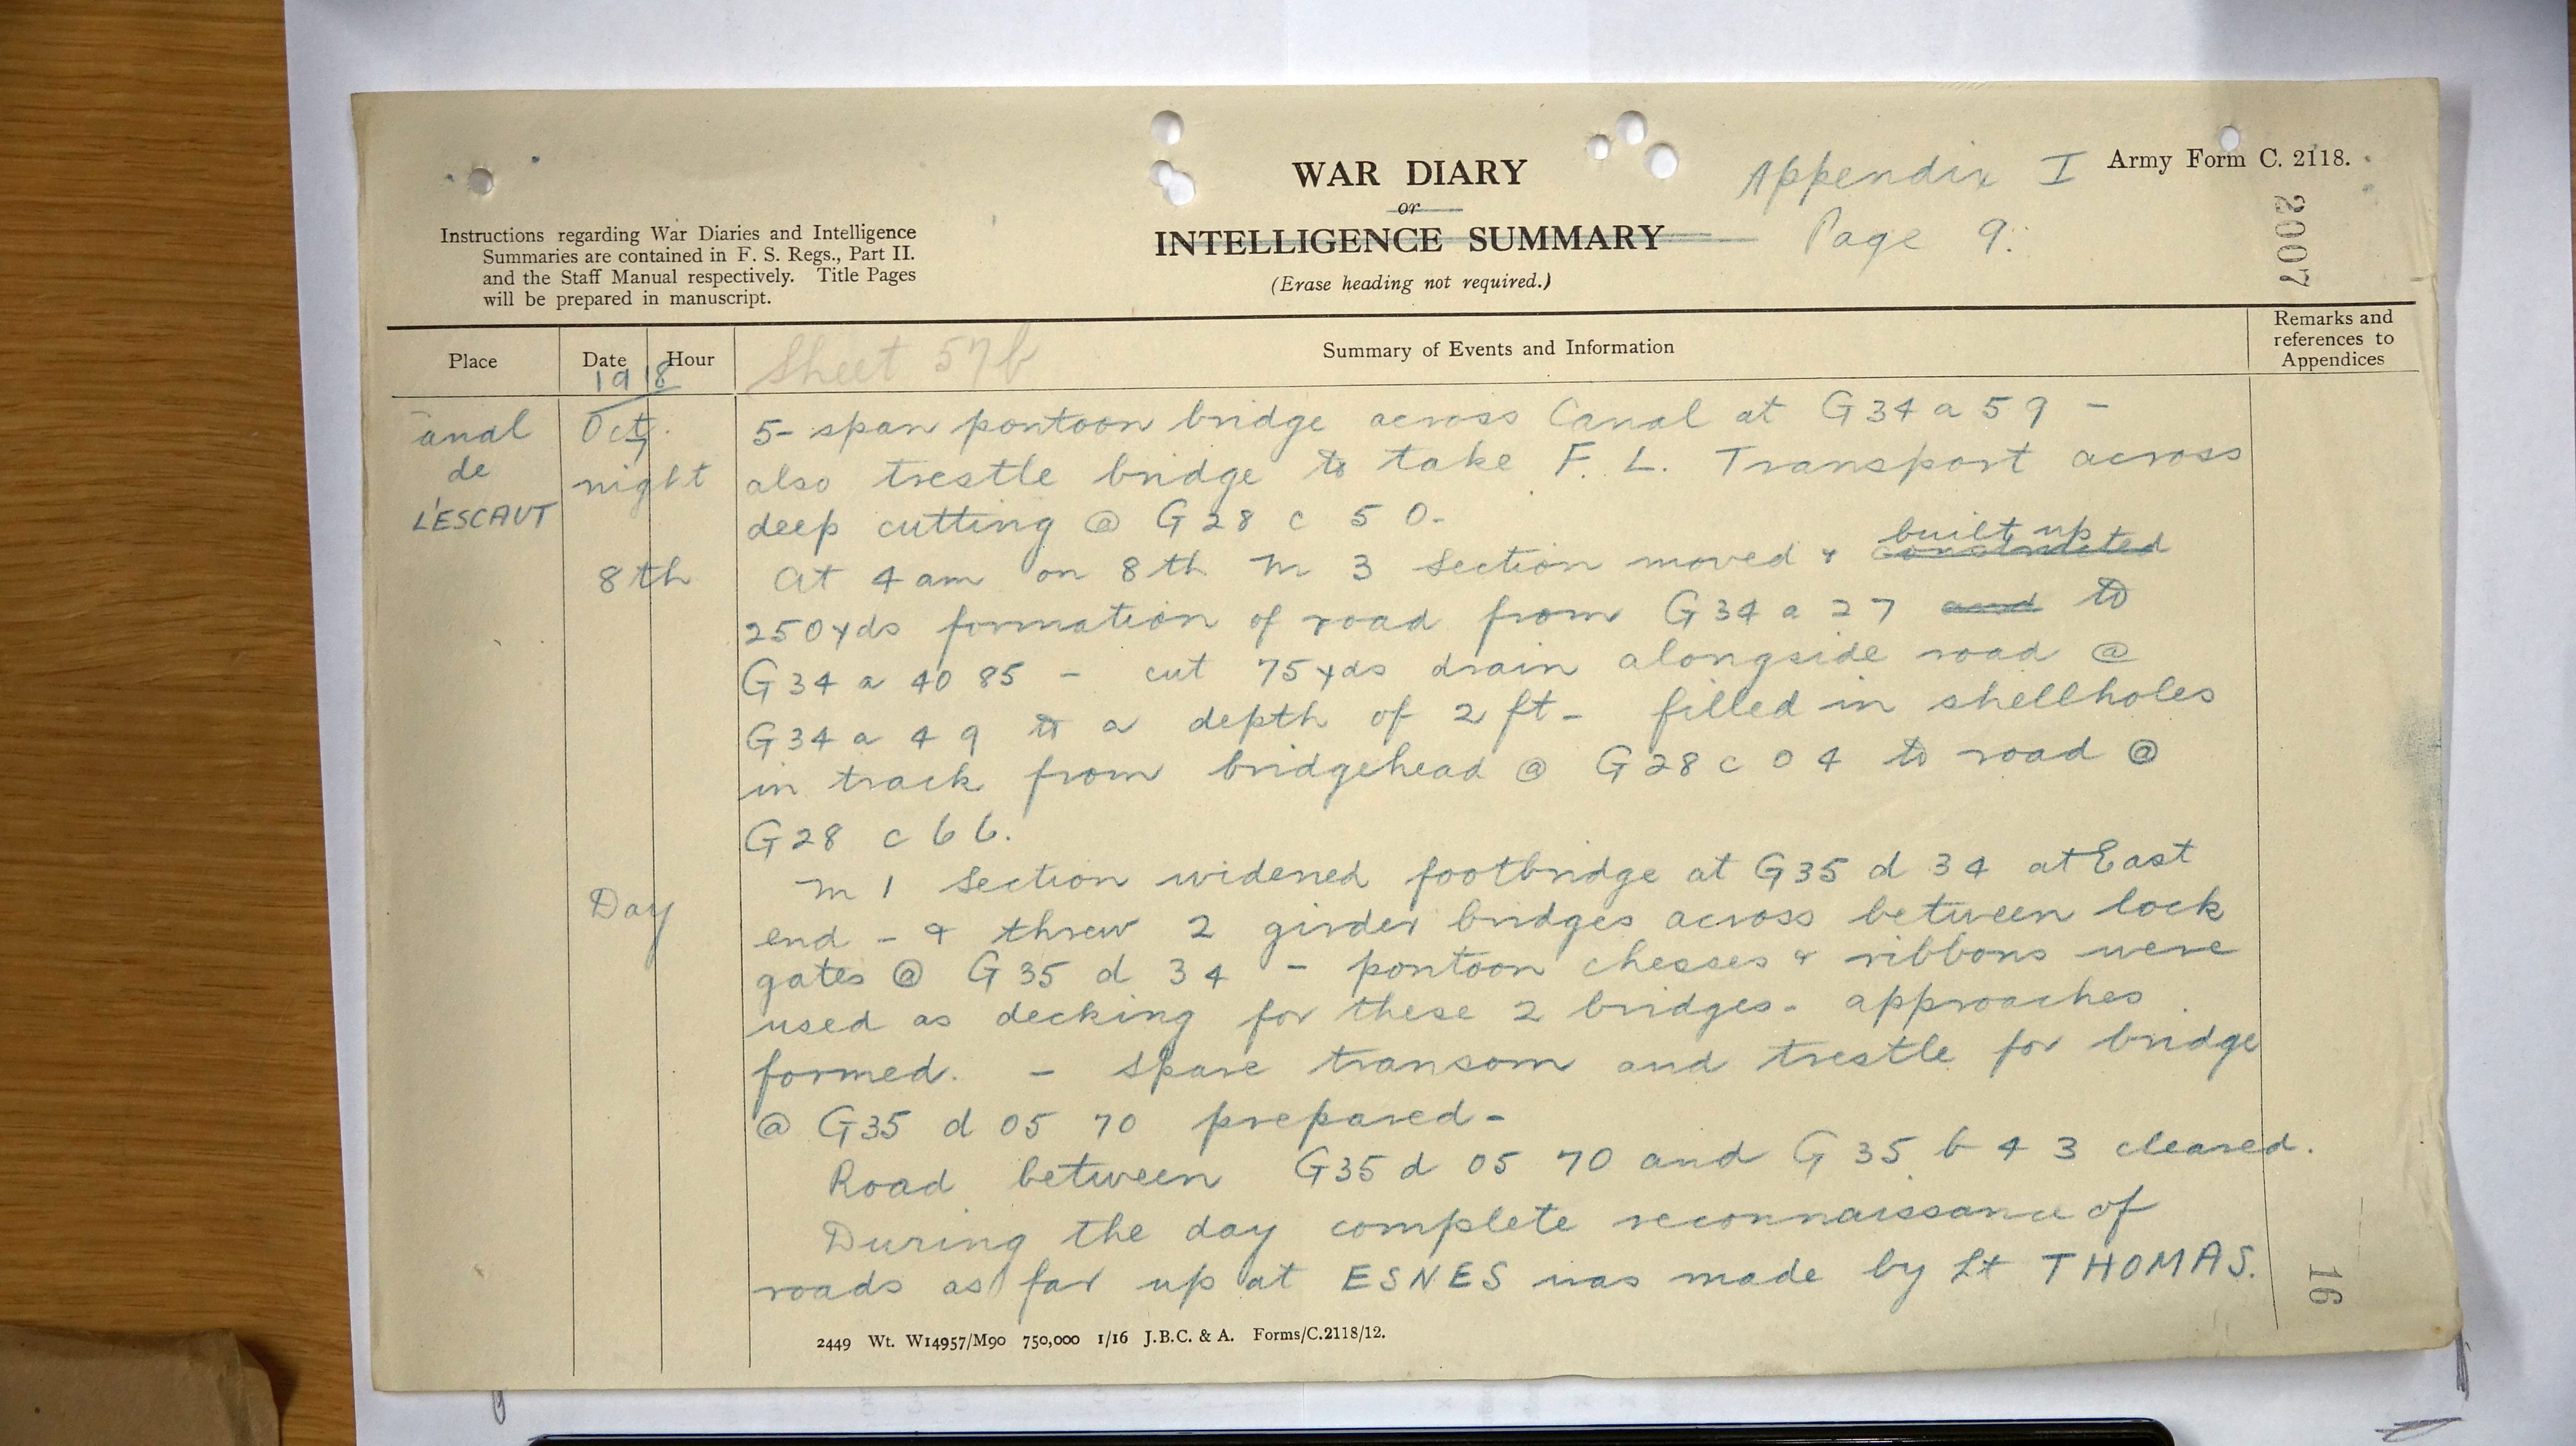 WAR DIARY
or
INTELLIGENCE SUMMARY
(Erase heading not required.)
Appendix I
Page 9.
Army Form C. 2118.
2007
Instructions regarding War Diaries and Intelligence
Summaries are contained in F. S. Regs., Part II.
and the Staff Manual respectively. Title Pages
will be prepared in manuscript.
Place
Date
Hour
1918
Sheet 57b
Summary of Events and Information
Remarks and
references to
Appendices
anal
de
L'ESCAUT
Oct.
7
night
5-span pontoon bridge across Canal at G34 a 5 9 -
also trestle bridge to take F. L. Transport across
deep cutting @ G28 c 5 0-
8th
At 4 am on 8th M 3 Section moved & constructed built up
250yds formation of road from G34 a 2 7 and to
G34 a 40 85 - cut 75yds drain alongside road @
G34 a 4 9 to a depth of 2 ft - filled in shellholes
in track from bridgehead @ G28 c 0 4 to road @
G28 c 6 6.
Day
M 1 Section widened footbridge at G35 d 3 4 at East
end - & threw 2 girder bridges across between lock
gates @ G35 d 3 4 - pontoon chesses & ribbons were
used as decking for these 2 bridges - approaches
formed. - Spare transom and trestle for bridge
@ G35 d 05 70 prepared-
Road between G35 d 05 70 and G35 b 4 3 cleared.
During the day complete reconnaissance of
roads as far up at ESNES was made by Lt THOMAS.
16
2449 Wt. W14957/M90 750,000 1/16 J.B.C. & A. Forms/C.2118/12.